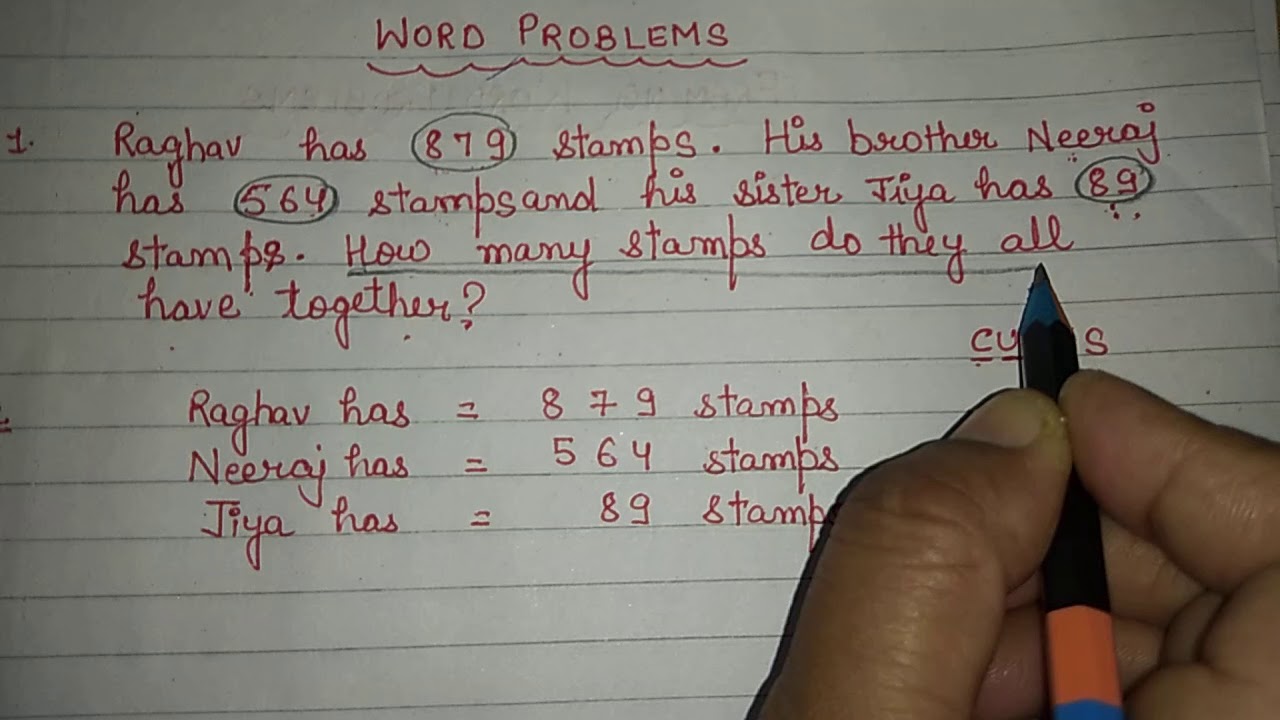 WORD PROBLEMS
1. Raghav has 879 stamps. His brother Neeraj
has 564 stamps and his sister Jiya has 89
stamps. How many stamps do they all
have together?
Raghav has = 879 stamps
Neeraj has = 564 stamps
Jiya has = 89